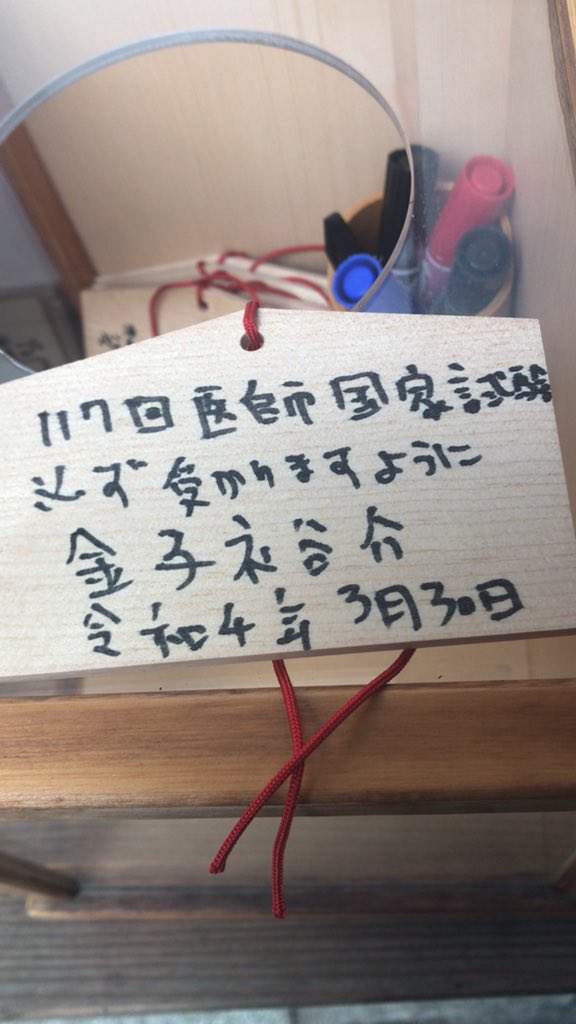 117回医師国家試験
必ず受かりますように
金子裕介
令和4年3月30日